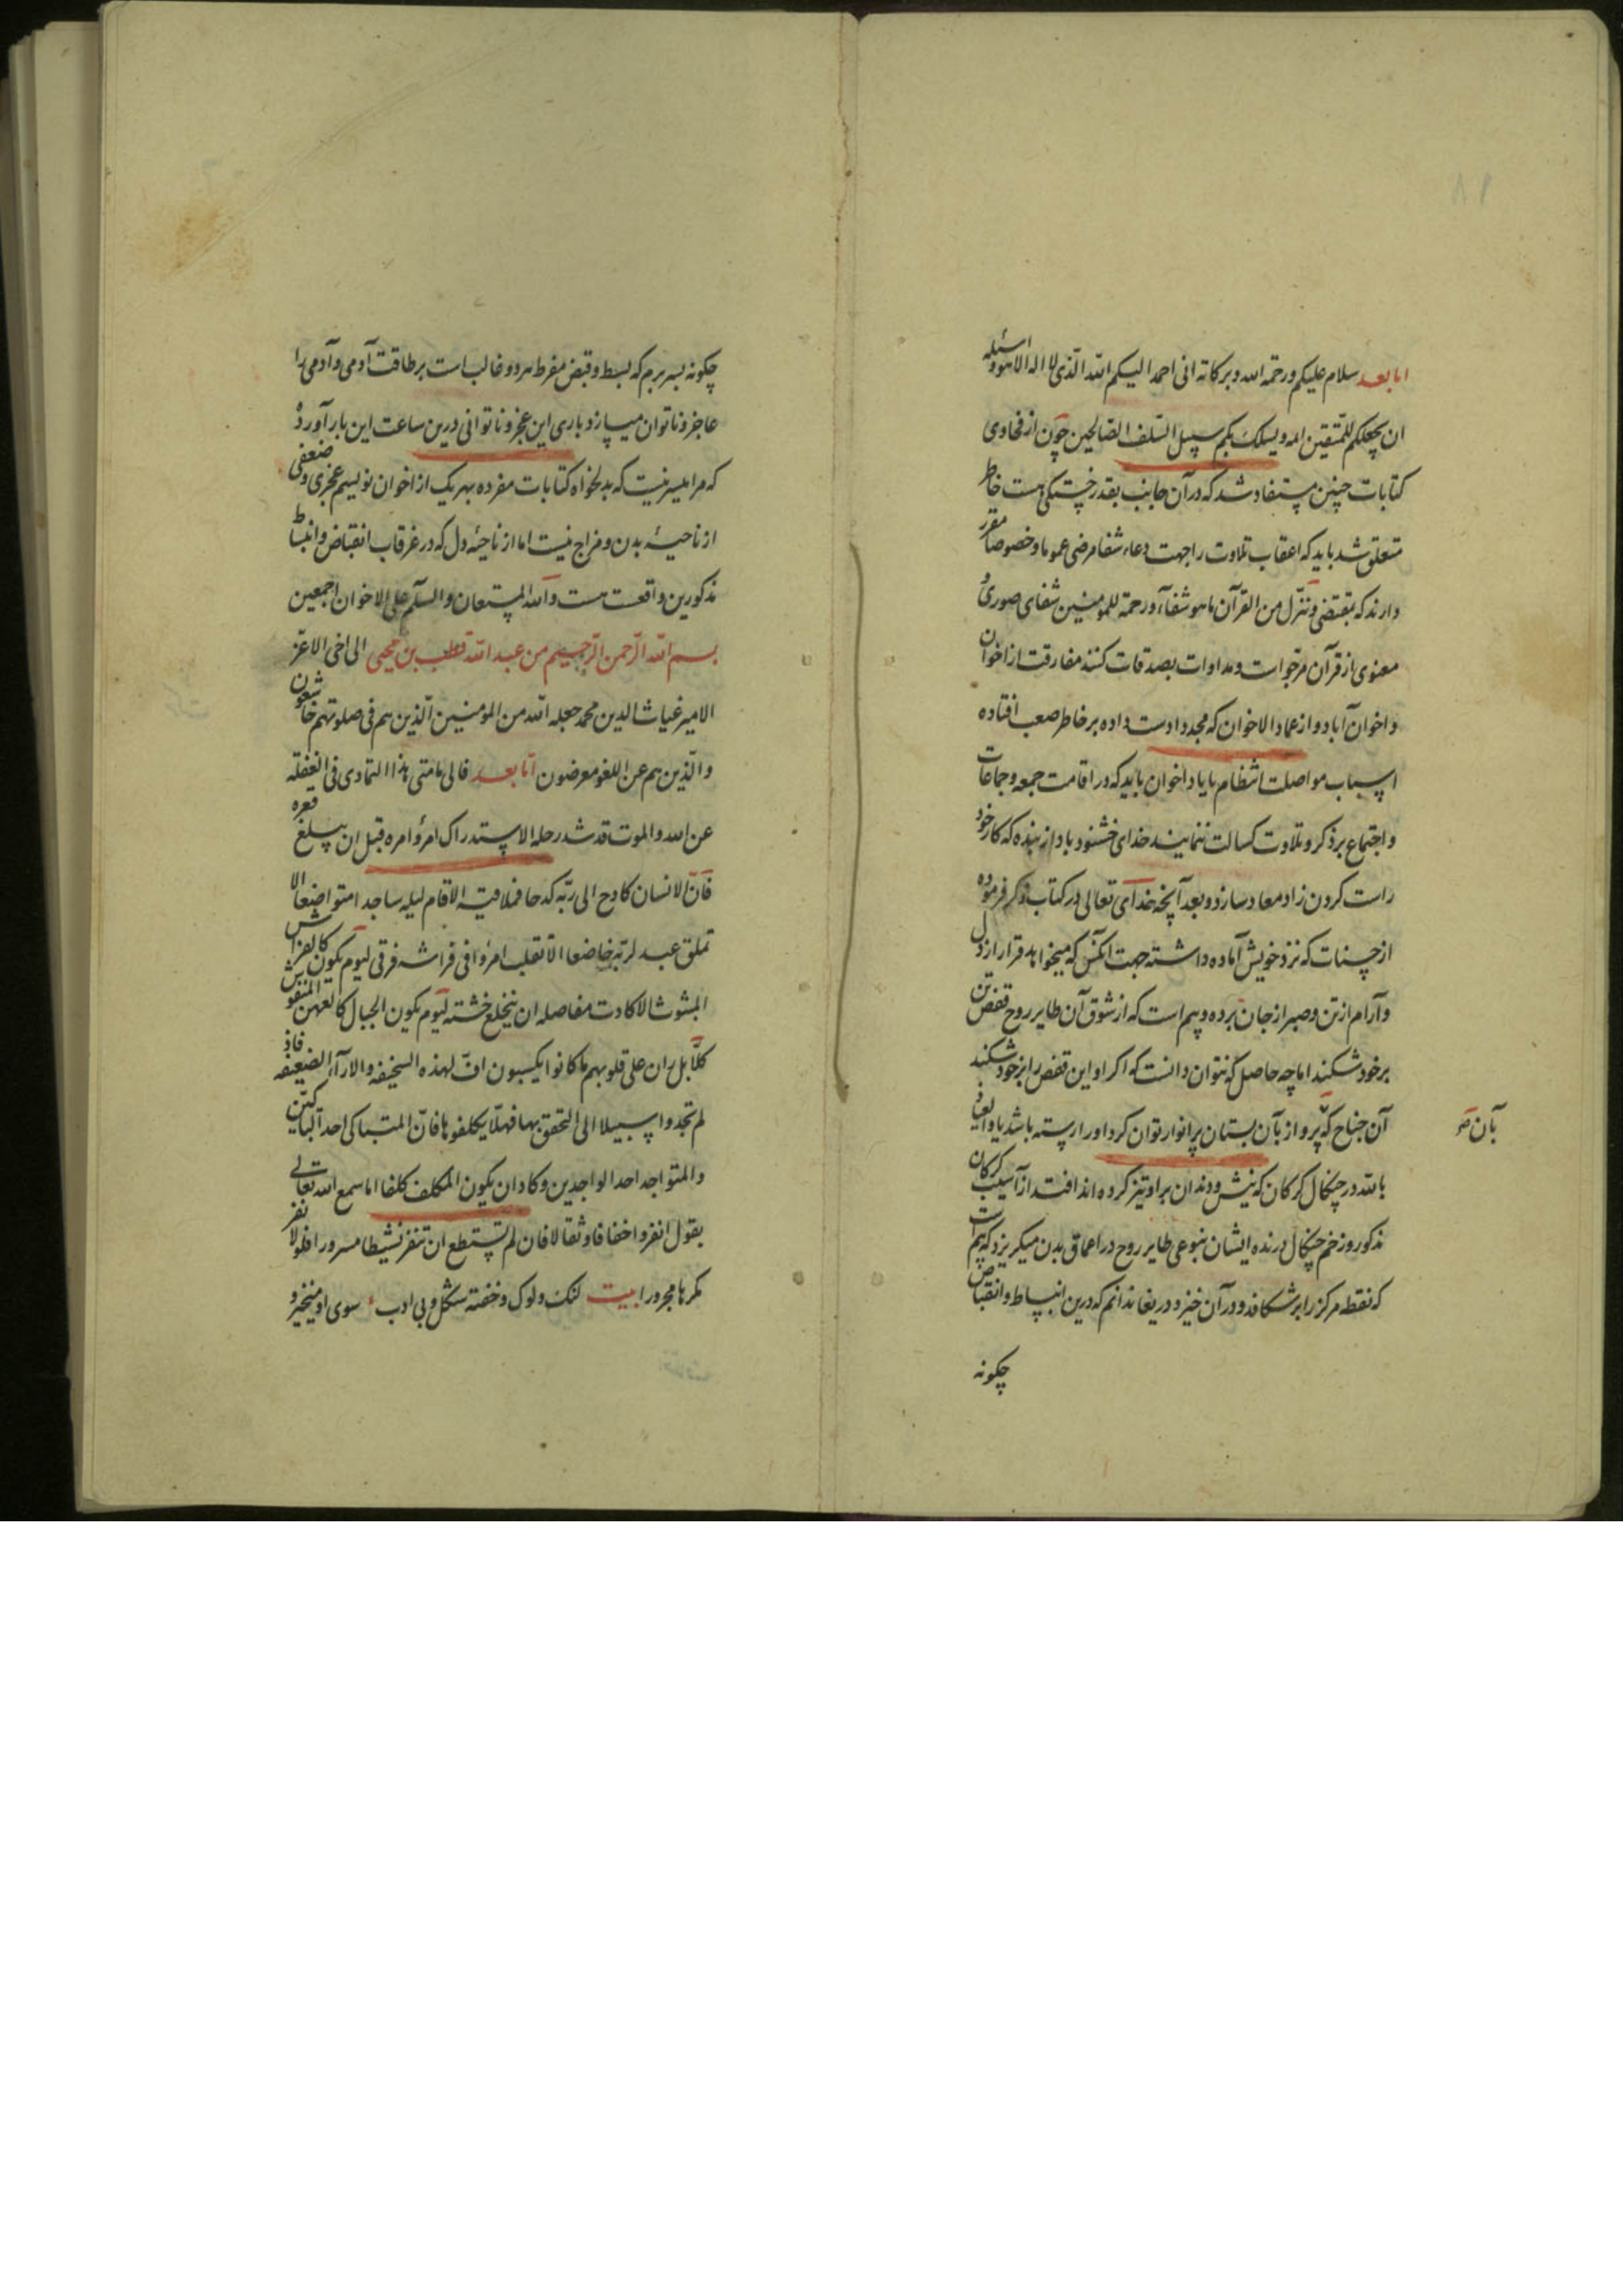 ٨١
اما بعد سلام علیکم ورحمة الله وبرکاته انی احمد الیکم الله الّذی لا اله الا هو واسئله
ان یجعلکم للمتقین امه ویسلک بکم سبیل السّلف الصّالحین چون از فحاوی
کتابات چنین مستفاد شد که در آن جانب بقدر خستکی هست خاطر
متعلق شد باید که اعقاب تلاوت را جهت دعاء شفا مرضی عموما وخصوصا مقرر
دارند که بمقتضی وننزّل من القرآن ما هو شفآء ورحمة للمومنین شفای صوری و
معنوی از قرآن مرجوّ است ومداوات بصدقات کنند مفارقت از اخوان
واخوان آباد واز عماد الاخوان که مجددا دست داده بر خاطر صعب افتاده
اسباب مواصلت انتظام یابا داخوان باید که در اقامت جمعه وجماعات
واجتماع بر ذکر وتلاوت کسالت ننمایند خدای خشنود باد از بنده که کار خود
راست کردن زاد معاد سازد وبعد آنچه خدای تعالی در کتاب ذکر فرموده
از حسنات که نزد خویش آماده داشته جهت انکس که میخواهد قرار از دل
وآرام از تن وصبر از جان برده وبیم است که از شوق آن طایر روح قفص تن
بر خود شکند اما چه حاصل که نتوان دانست که اکر او این قفص را بر خود شکند
آن جناح که پرواز بآن بستان پر انوار توان کرد او را رسته باشد یا والعیاذ
بآن صح
بالله در چنکال کرکان که نیش ودندان بر او تیز کرده اند افتد از آسیب کرکان
مذکور وزخم چنکال درنده ایشان بنوعی طایر روح در اعماق بدن میکریزد که بیم است
که نقطه مرکز را بر شکافد ودر آن خیزد دریغا ندانم که درین انبساط وانقباض
چکونه
چکونه بسر برم که بسط وقبض مفرط هر دو غالب است بر طاقت آدمی وآدمی را
عاجز وناتوان میسازد باری این عجز وناتوانی درین ساعت این بار آورد
که مرا میسر نیست که بدلخواه کتابات مفرده بهر یک از اخوان نویسم عجزی وضعفی
از ناحیهٔ بدن ومزاج نیست اما از ناحیهٔ دل که در غرقاب انقباض وانبساط
مذکورین واقعست هست والله المستعان والسلم علی الاخوان اجمعین
بسم الله الرّحمن الرّحیم من عبد الله قطب بن محیی الی اخی الاعزّ
الامیر غیاث الدین محمد جعله الله من المومنین الّذین هم فی صلوتهم خاشعون
والّذین هم عن اللغو معرضون امّا بعد فالی متی هذا التمادی فی الغفلة
عن الله والموت قد شد رحله الا یستدراک امرؤ امره قبل ان یبلغ قعره
فانّ الانسان کادح الی ربّه کدحا فملاقیه الا قام لیله ساجدا متواضعا الا
تملق عبد لربّه خاضعا الا تقلب امرؤ فی فراشه فرقی لیوم یکون کالفراش
المبثوث الا کادت مفاصله ان ینخلع خشته لیوم یکون الجبال کالعهن المنفوش
کلّا بل ران علی قلوبهم ما کانوا یکسبون افّ لهذه السخیفه والارآء الضعیفه فاذ
لم تجدوا سبیلا الی التحقق بها فهلّا یکلفوها فانّ المتباکی احد الباکیین
والمتواجد احد الواجدین وکاد ان یکون المکلف کلفا اما سمع الله تعالی
یقول انفروا خفافا وثقالا فان لم تستطع ان تنفر نشیطا مسرورا فلولا نفر
مکرها مجرورا بیت لنک ولوک وخفته شکل وبی ادب سوی او میخیز و